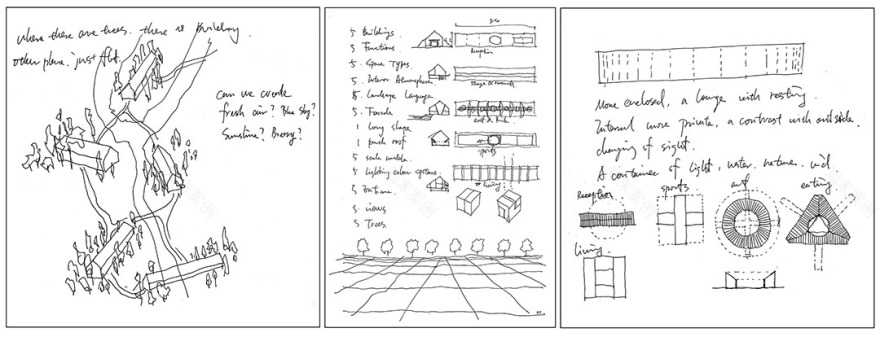 where there are trees. there is building.
other place. just flat.
can we create
fresh air? Blue sky?
Sunshine? Breezy?
5 Buildings
5 Functions
5 Space Types
5 Interior Atmosphere
5 Landscape Language
5 Facade
1 long shape
1 roof
5 scale
5 lighting colour systems
5
5 views
5 Trees
Reception
sports
living
More enclosed, a lounge with resting.
Internal more private, a contrast with outside.
changing of sight.
A container of light, water, nature, wind
Reception
sports
art
eating
living